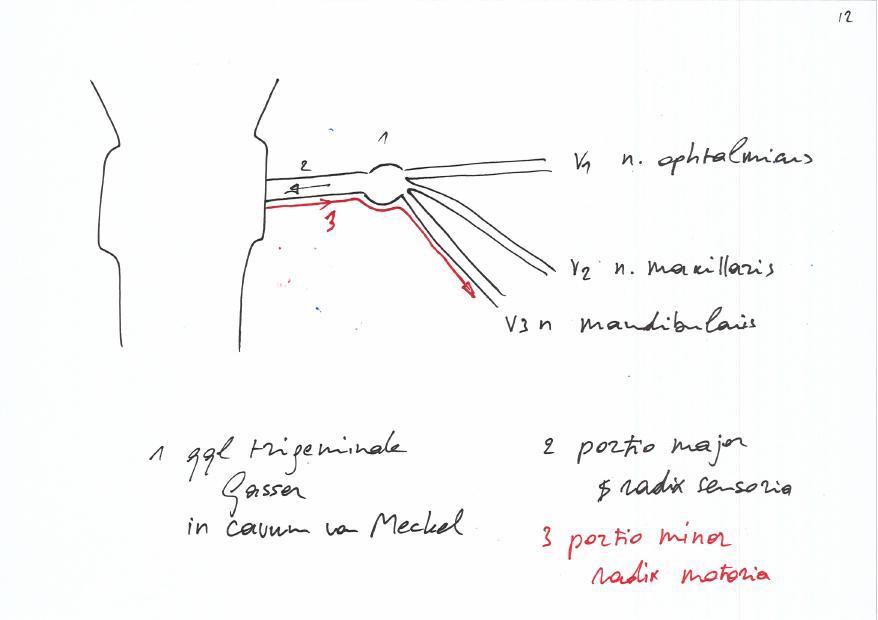 12
1
2
3
V1 n. ophtalmicus
V2 n. maxillaris
V3 n mandibularis
1 ggl trigeminale
Gasser
in cavum van Meckel
2 portio major
radix sensoria
3 portio minor
radix motoria